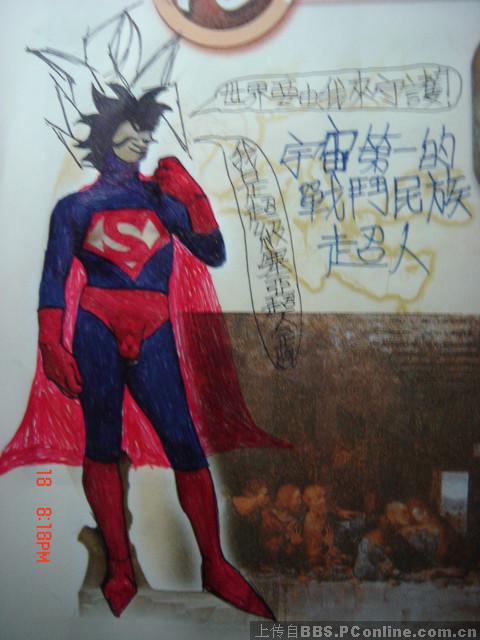 世界要由我來守護!
宇宙第一的
戰鬥民族
超人
S
18 8:18PM
上传自BBS.PConline.com.cn